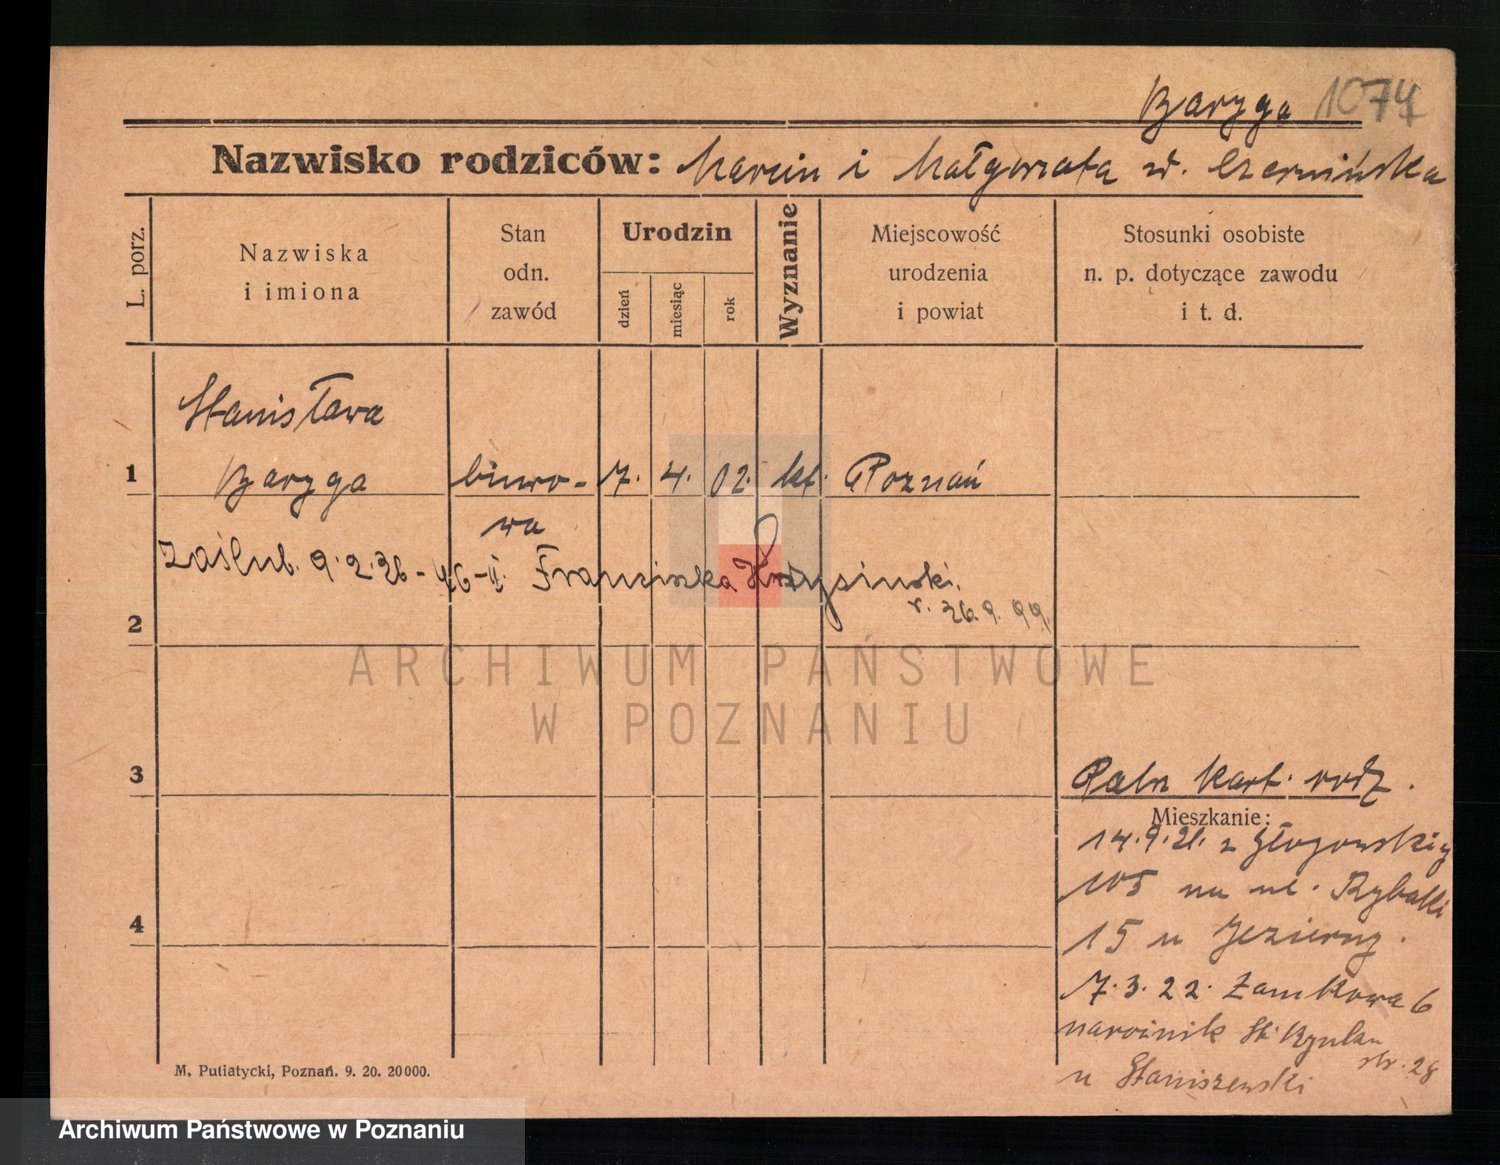 Baryga 1074
Nazwisko rodziców: Marcin i Małgorzata zd. Czermińska
L. porz.
Nazwiska
i imiona
Stan
odn.
zawód
Urodzin
dzień
miesiąc
rok
Wyznanie
Miejscowość
urodzenia
i powiat
Stosunki osobiste
n. p. dotyczące zawodu
i t. d.
Stanisława
1 Baryga biuro- 7. 4. 02. kt. Poznań
wa
Zaślub. 9.2.26 - Franciszka
r. 26.9.99.
2
ARCHIWUM PAŃSTWOWE
W POZNANIU
3
Patrz kart. rodz.
Mieszkanie:
14.9.21. z Głogowskiej
105 na ul. Rybaki
15 u
4
7.3.22. Zamkowa 6
narożnik St. Rynku
str. 28
u Staniszewski
M. Putiatycki, Poznań. 9. 20. 20000.
Archiwum Państwowe w Poznaniu